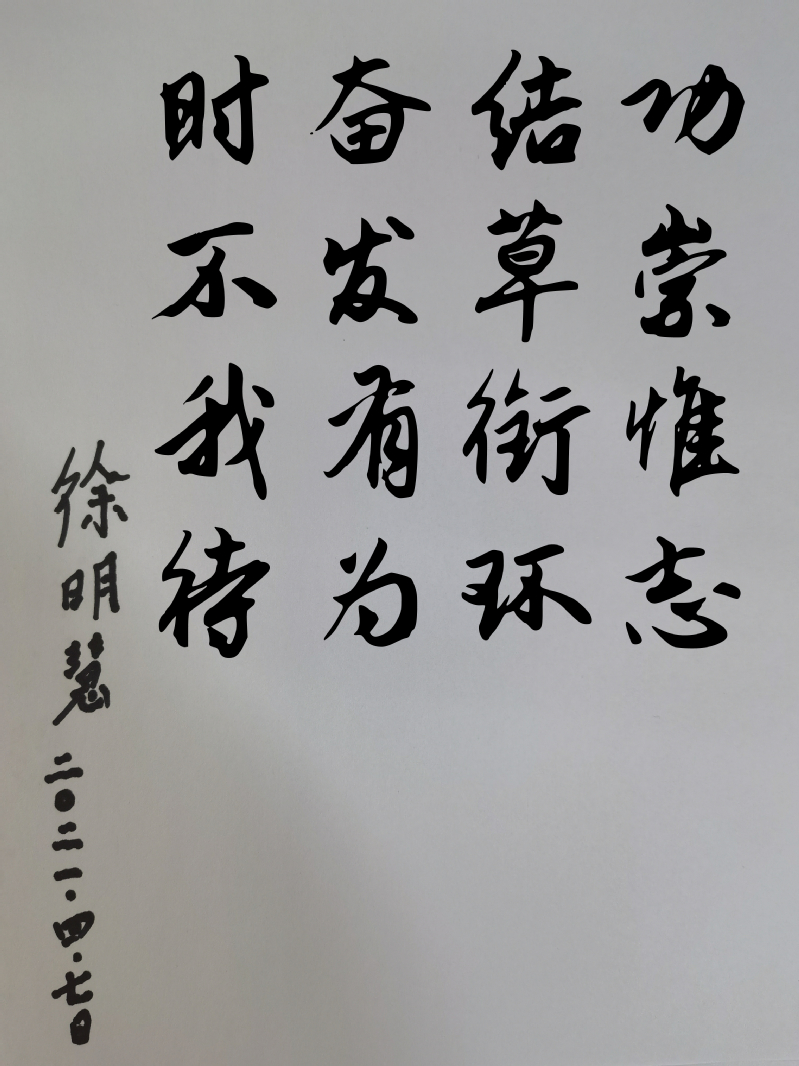 功崇惟志
结草衔环
奋发有为
时不我待
徐明慧
二〇二一·四·七日